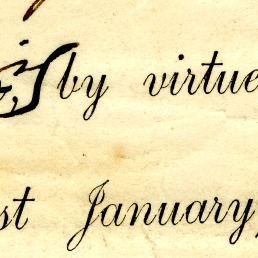 by virtue
st January,